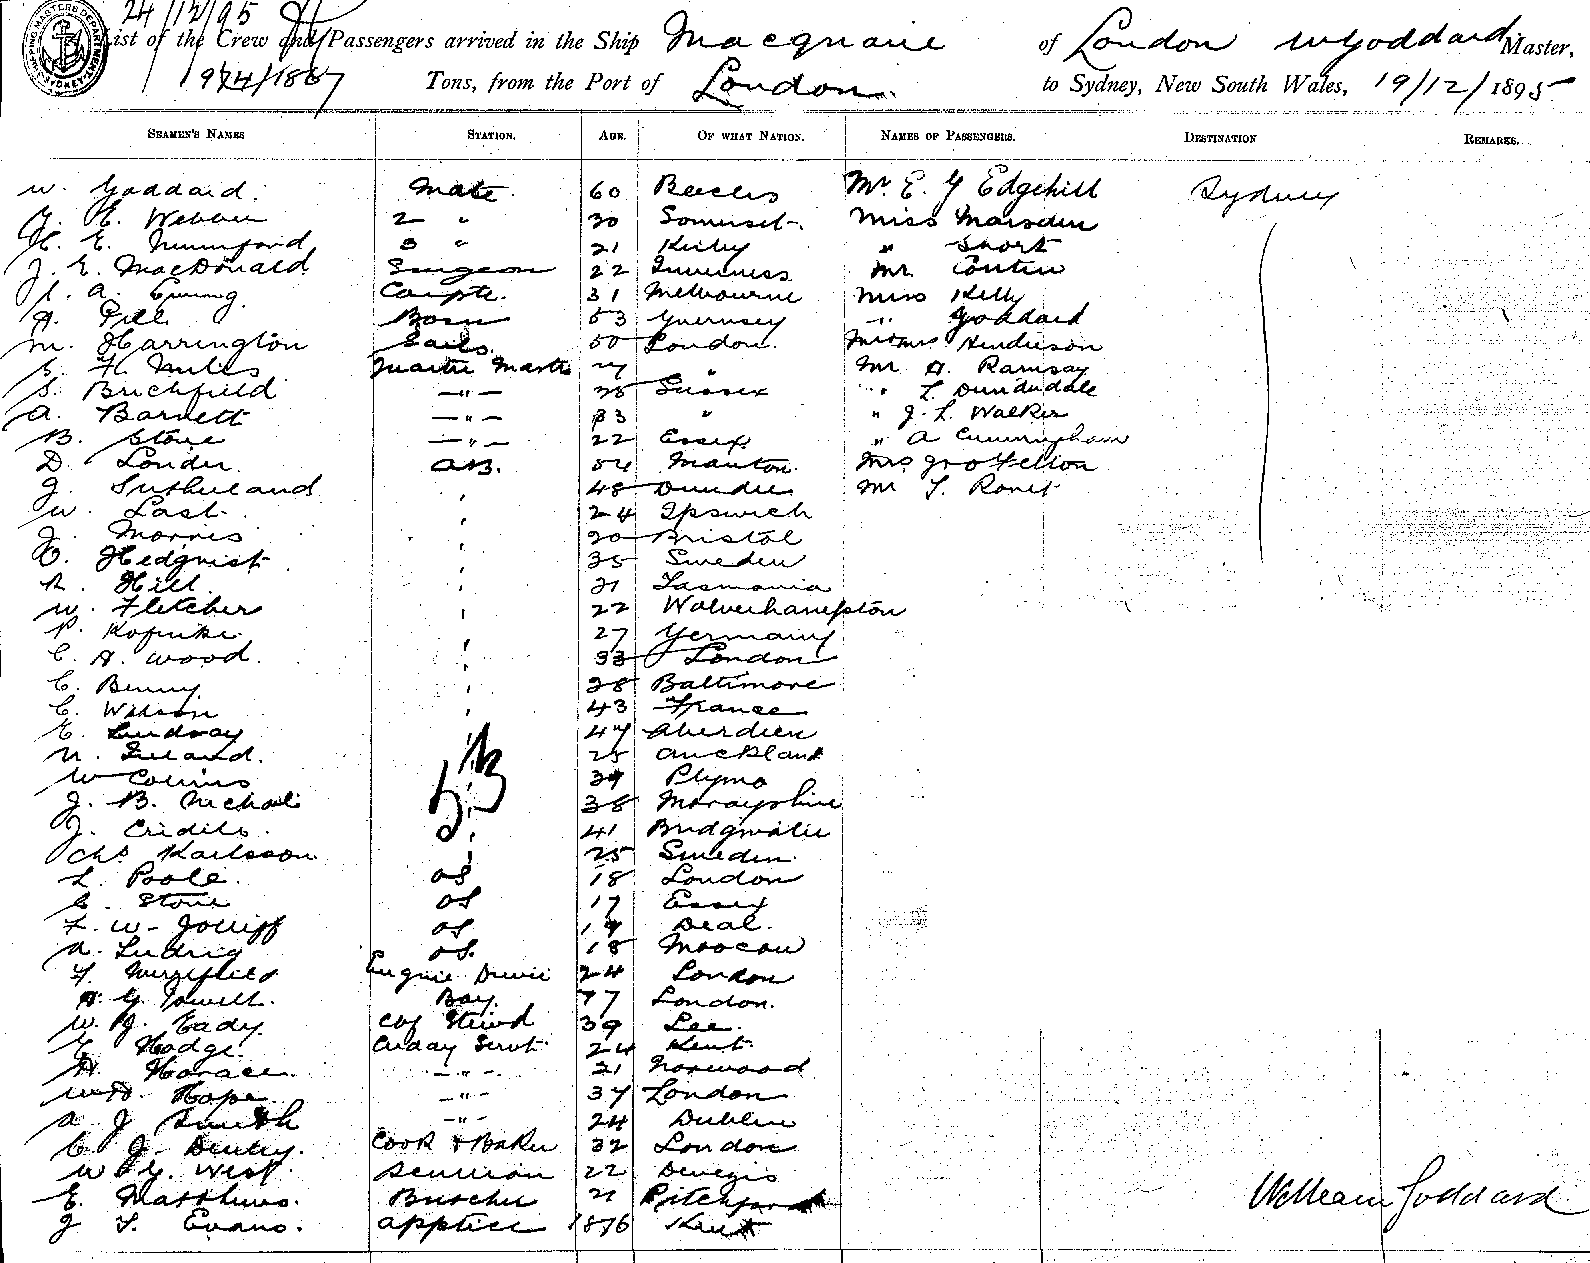 24/12/95
List of the Crew and Passengers arrived in the Ship Macquarie of London W Goddard Master,
1974/1887 Tons, from the Port of London to Sydney, New South Wales, 19/12/1895
SEAMEN'S NAMES STATION. AGE. OF WHAT NATION. NAMES OF PASSENGERS. DESTINATION REMARKS.
W. Goddard. Mate. 60 Beccles Mr. E. G Edgehill Sydney
2 " 30 Somerset. Miss Marsden
H. E. Mumford 3 " 21 Kirby " Short
J. E. MacDonald Surgeon 22 Inverness Mr
A. Ewing Carptr. 31 Melbourne Miss Kelly
A. Pill Bosn 53 Guernsey " Goddard
M. Harrington Sails. 50 London. Henderson
H. Miles " Mr A. Ramsay
S. Birchfield —"— 25 Sussex "
A. Barnett —"— 33 " " J. L. Walker
B. Stone —"— 22 Essex " A Cunningham
D. AB. 54 Mrs
J. Sutherland ' 48 Dundee Mr
W. Last ' 24 Ipswich
J. Morris ' 20 Bristol
O. Hedqvist 35 Sweden
R. Hill ' 21 Tasmania
W. Fletcher ' 22 Wolverhampton
P. ' 27 Germany
C. A. Wood. ' 33 London
C. Benny ' 28 Baltimore
C. Wilson ' 43 France
E. Lindsay 47 Aberdeen
N. Ireland. 25 Auckland
W Collins 39 Plymo
J. B. Nichol 38 Morayshire
J. 41 Bridgwater
Chs Karlsson 25 Sweden.
L. Poole. OS 18 London
C. Stone OS 17 Essex
F. W. Jolliff OS 19 Deal.
A. Ludwig OS. 18 Moscow
F. Engine Driver 24 London
A. G. Jowett. Boy. 17 London.
W. J. Eady. Stewd 39 Lee.
E. Hodge. Cuddy Servt 24 Kent.
H. Horace. —"— 21 Norwood
Hope. —"— 37 London
A. J Smith —"— 24 Dublin
C. J. Denny. Cook & Baker 32 London
W G. West. Scullion 22 Devizes
E. Matthews. Butcher 21
J. T. Evans. Apptice 1876 Kent
William Goddard